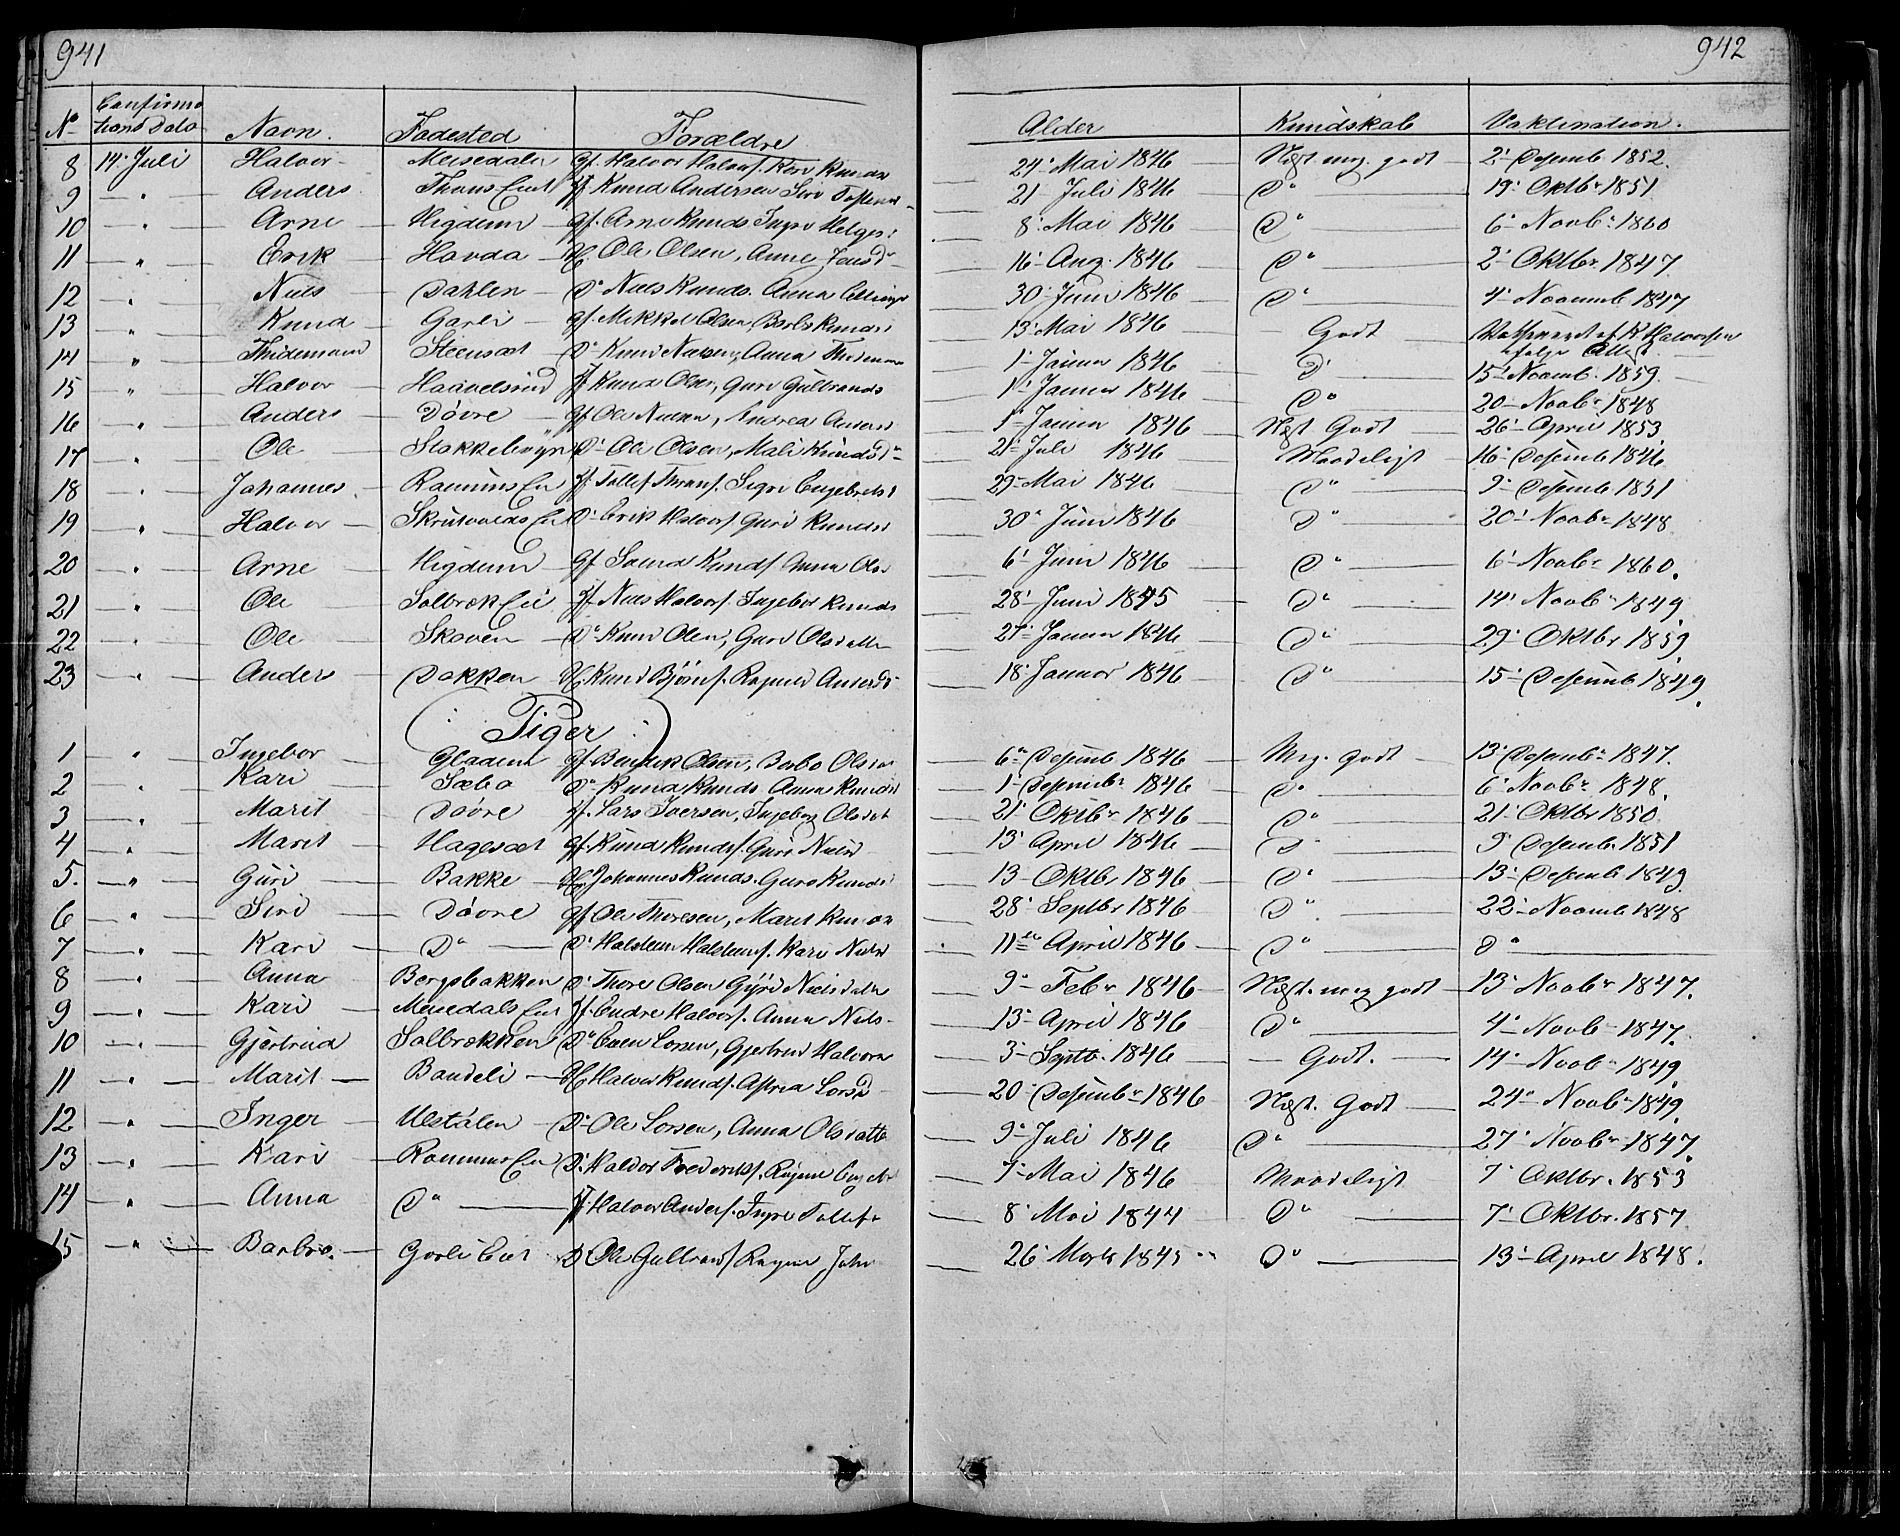 941
942
No Confirmations Dato Navn. Fødested Forældre Alder Kundskab Vaktination.
8 14' Juli Halvor Meisedalen Gf. Halvor Halvors. Kari Knuds 24' Mai 1846 Ngst. mg. godt 2' Desemb 1852.
9 " Anders Thons Eiet Jf Knud Andersen Siri Tostens 21 Juli 1846 D" 19' Oktbr 1851
10 " Arne Higdem Gf. Arne Knuds Ingri Helges 8' Mai 1846 D" 6' Novbr 1860
11 " Erik Havda H Ole Olsen, Anne Jensd 16' Aug. 1846 D" 2' Oktbr 1847
12 " Niels Dahlen D" Niels Knuds. Anna 30' Juni 1846 D" 4' Novemb 1847
13 " Knud Garli Gf. Mikkel Olsen, Barbr Knuds 13' Mai 1846 Godt af K Halvorsen
14 " Thidemand Steensæt D" Knud Anna 1' Januar 1846 D" 15' Novemb. 1859.
15 " Halvor Haavelsrud Jf Knud Olsen, Guri Gulbrands 1' Januar 1846 D" 20' Novbr 1848
16 " Anders Døvre Gf Ole Nielsen, Andrea Anders 1' Januar 1846 Ngst Godt 26' April 1853
17 " Ole D" Ole Olsen, Mali Knudsd 21' Juli 1846 Maadeligt 16' Desemb 1846
18 " Johannes Ramums Ei Jf. Tollef Sigri Engebrets 29' Mai 1846 D" 9' Desemb 1851
19 " Halvor Skrutvolds Ei D" Erik Halvors Guri Knudsd 30' Juni 1846 D" 20' Novbr 1848
20 " Arne Higdem Gf Svend Knuds Anna Ols 6' Juni 1846 D" 6' Novbr 1860.
21 " Ole Solbræk Ei Jf Niels Halvors. Ingebor Knuds 28' Juni 1845 D" 14' Novbr 1849
22 " Ole Skoven D" Knud Olsen, Guri Olsdatter 27' Januar 1846 D" 29' Oktbr 1859
23 " Anders Bakken H. Knud Bjørns. Ragnild Andersd 18' Januar 1846 D" 15' Desemb 1849.
(: Piger :)
1 " Ingebor Gladem Gf Bendik Olsen, Barbo Olsda 6' Desemb 1846 Mg. Godt 13' Desembr 1847.
2 " Kari Sæbo D" Knud Knuds Anna Knudsd 1' Desembr 1846 D" 6' Novbr 1848.
3 " Marit Døvre Jf. Lars Iversen, Ingeborg Olsdat 21' Oktbr 1846 D" 21' Oktbr 1850
4 " Marit Hagesæt Gf. Knud Knuds. Guri Nielsd 13' April 1846 D" 9' Desembr 1851
5. " Guri Bakke H Johannes Knuds. Guro Knuds 13' Oktbr 1846 D" 13' Desemb 1849
6 " Siri Døvre Gf Ole Thoresen, Marit Knuds 28' Septbr 1846 D" 22' Novemb 1848
7 " Kari D" D" Halsteen Halsteens. Kari Nielsd 11te April 1846 D" D"
8 " Anna Bergsbakken D" Thore Olsen Gyri Nielsdatter 9' Febr 1846 Ngst. meg godt 13' Novbr 1847.
9 " Kari Meisedals Eiet Jf. Endre Halvors. Anna Niels 13' April 1846 D" 4' Novb 1847.
10 " Gjertrud Solbrækken D" Even Larsen, Gjertrud Halvors 3' Septb. 1846 Godt. 14' Novbr 1849
11 " Marit Baudeli H Halvor Knuds. Larsd 20' Desembr 1846 Ngst. Godt 24' Novbr 1849.
12 " Inger Ulstalen D" Ole Larsen, Anna Olsdatt 9' Juli 1846 D" 27' Novbr 1847.
13 " Kari Rammums Ei D" Haldor Frederiks. Ragnild 7' Mai 1846 Maadeligt 7' Oktbr. 1853
14 " Anna D" Jf Halvor Anders. Ingri Tollefs 8' Mai 1844 D" 7' Oktbr. 1857
15 " Barbro. Garli Eiet D" Ole Gulbrands Ragnild Joh 26' Marts 1845 D" 13' April 1848.